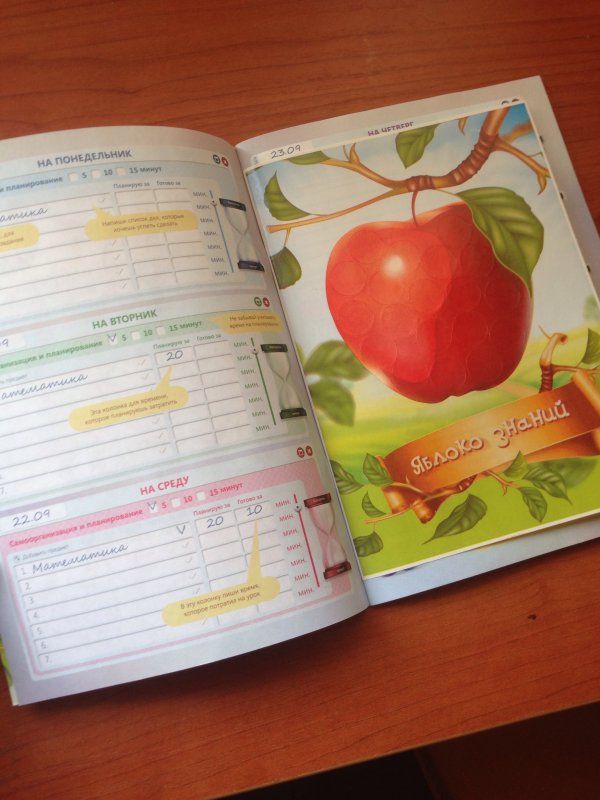 НА ПОНЕДЕЛЬНИК
и планирование 5 10 15 минут
Планирую за Готово за
матика
для
Напиши список дел, которые
хочешь успеть сделать
мин.
мин.
мин.
мин.
мин.
НА ВТОРНИК
09
анизация и планирование 5 10 15 минут
Не забывай учитывать
время на планирование
Планирую за Готово за
Добавить предмет
атематика 20
мин.
мин.
мин.
мин.
мин.
Эта колонка для времени,
которое планируешь затратить
7.
НА СРЕДУ
22.09
Самоорганизация и планирование 5 10 15 минут
Добавить предмет
Планирую за Готово за
1. Математика 20 10 мин.
2. мин.
3. мин.
4. мин.
5. мин.
6. мин.
7.
В эту колонку пиши время,
которое потратил на урок
НА ЧЕТВЕРГ
23.09
ЯБЛОКО ЗНАНИЙ